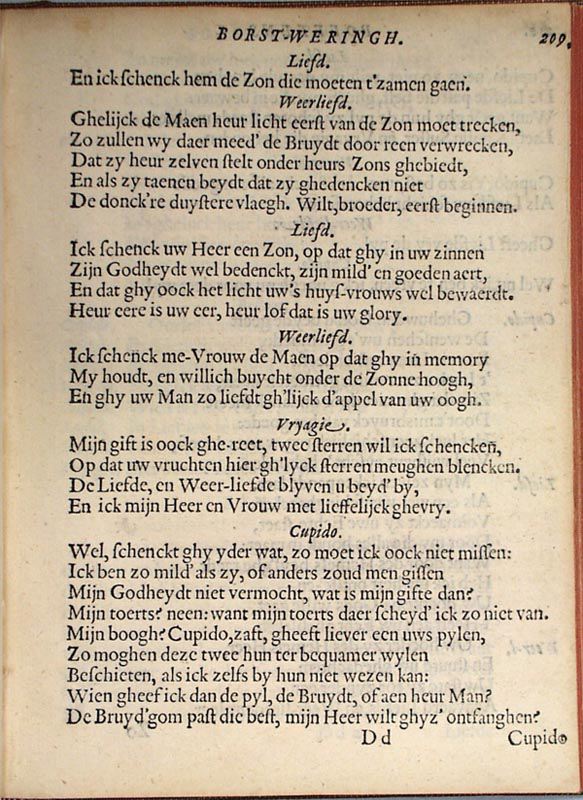 BORST-WERINGH. 209.
Liefd.
En ick schenck hem de Zon die moeten t'zamen gaen.
Weerliefd.
Ghelijck de Maen heur licht eerst van de Zon moet trecken,
Zo zullen wy daer meed' de Bruydt door reen verwrecken,
Dat zy heur zelven stelt onder heurs Zons ghebiedt,
En als zy taenen beydt dat zy ghedencken niet
De donck're duystere vlaegh. Wilt, broeder, eerst beginnen.
Liefd.
Ick schenck uw Heer een Zon, op dat ghy in uw zinnen
Zijn Godheydt wel bedenckt, zijn mild' en goeden aert,
En dat ghy oock het licht uw's huys-vrouws wel bewaerdt.
Heur eere is uw eer, heur lof dat is uw glory.
Weerliefd.
Ick schenck me-Vrouw de Maen op dat ghy in memory
My houdt, en willich buycht onder de Zonne hoogh,
En ghy uw Man zo liefdt gh'lijck d'appel van uw oogh.
Vryagie.
Mijn gift is oock ghe-reet, twee sterren wil ick schencken,
Op dat uw vruchten hier gh'lyck sterren meughen blencken.
De Liefde, en Weer-liefde blyven u beyd' by,
En ick mijn Heer en Vrouw met lieffelijck ghevry.
Cupido.
Wel, schenckt ghy yder wat, zo moet ick oock niet missen:
Ick ben zo mild' als zy, of anders zoud men gissen
Mijn Godheydt niet vermocht, wat is mijn gifte dan?
Mijn toerts? neen: want mijn toerts daer scheyd' ick zo niet van.
Mijn boogh? Cupido, zaft, gheeft liever een uws pylen,
Zo moghen deze twee hun ter bequamer wylen
Beschieten, als ick zelfs by hun niet wezen kan:
Wien gheef ick dan de pyl, de Bruydt, of aen heur Man?
De Bruyd'gom past die best, mijn Heer wilt ghyz' ontfanghen?
D d Cupido